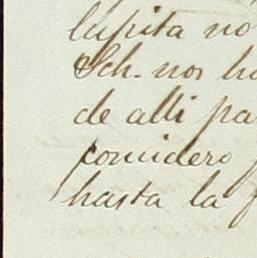 lupita no
Sch. nos h
de alli pa
comidero
hasta la f